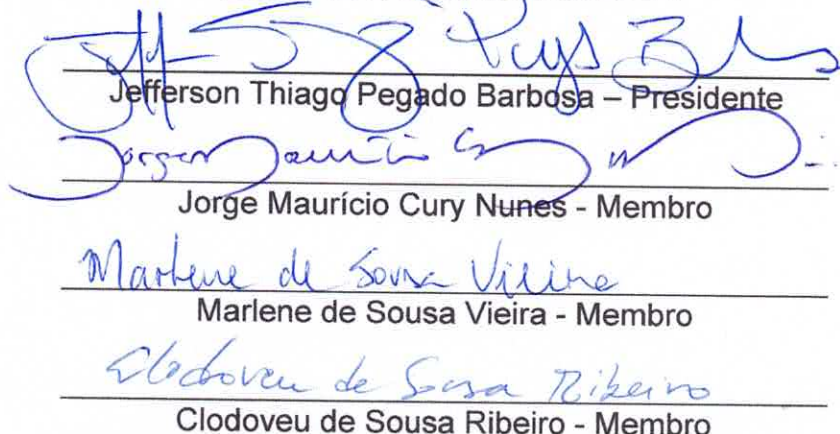 Jefferson Thiago Pegado Barbosa – Presidente
Jorge Maurício Cury Nunes - Membro
Marlene de Sousa Vieira
Marlene de Sousa Vieira - Membro
Clodoveu de Sousa Ribeiro
Clodoveu de Sousa Ribeiro - Membro